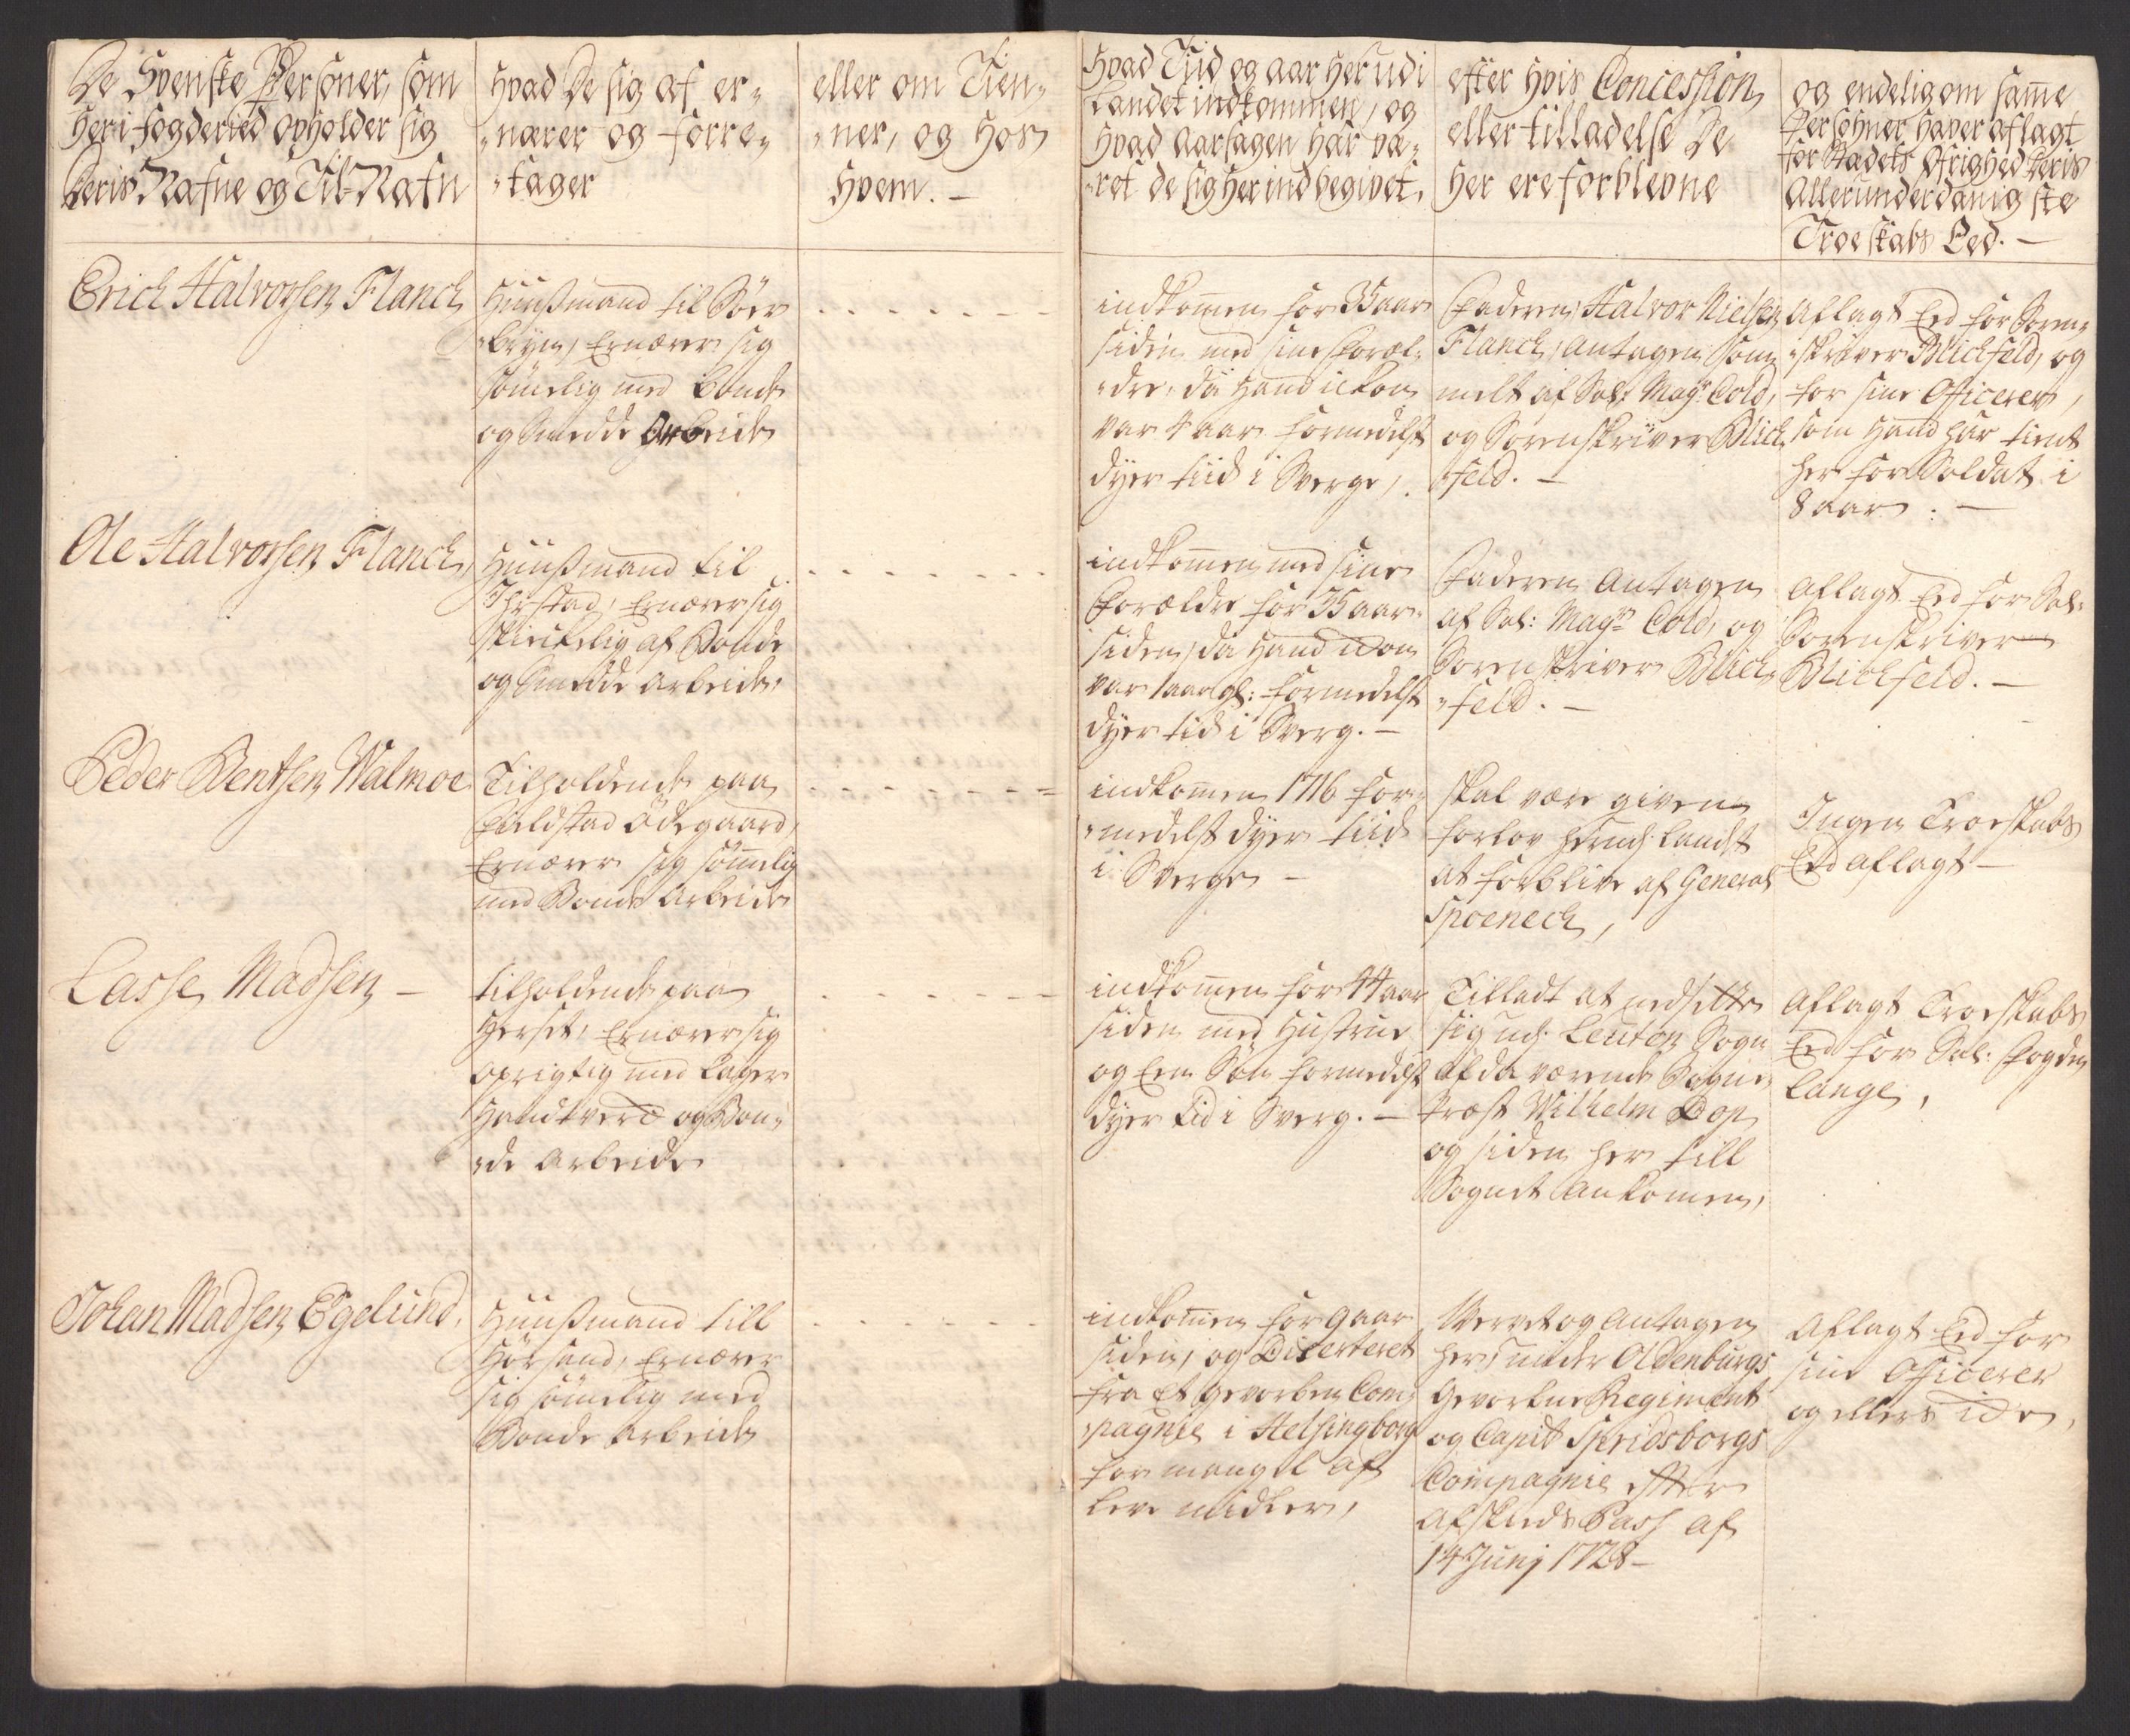 De Svenske Persohner, som
Her i fogderied opholder sig
Deris Nafne og Til-Nafn
Hvad De sig af er-
nærer og forre-
tager
eller om Tien-
ner, og Hos
Hvem. —
Hvad Tiid og aar Her udi
Landet indkommen, og
Hvad Aarsagen har væ-
ret de sig Her ind begivet.
efter Hvis Concession
eller tilladelse De
Her ere forblevne
og endelig om samme
Persohner haver aflagt
for Stædets Øfrighed deris
Allerunderdanigste
Troeskabs Eed. —
Erich Halvorsen Flanck
Huusmand til Sør-
bryn, Ernærer sig
sømelig med bonde
og Smedde Arbeide
indkommen for 35 aar
siden med sine foræl-
dre, da hand ickon
var 4 aar formedelst
dyer tiid i Sverge,
Faderen Halvor Nielsen
Flanck, antagen som
melt af Sal: Mag: Cold,
og Sorenskriver Blich
feld. —
Aflagt Eed for Soren-
skriver Blichfeld, og
for sine Officerer,
som hand har tient
her for Soldat i
8 aar. —
Ole Halvorsen Flanck,
Huusmand til
Thystad, Ernærer sig
skickelig af Bonde
og Smedde arbeide.
indkommen med sine
Forældre for 35 aar
siden, da hand icon
var 1 aar gl: formedelst
dyer tid i Sverg. —
Faderen Antagen
af Sal: Magr Cold, og
Sorenskriver Blich-
feld. —
Aflagt Eed for Sal:
Sorenskriver
Blichfeld. —
Peder Bentsen Walmoe
Tilholdende paa
Fieldstad Ødegaard,
Ernærer sig sømmelig
med Bonde Arbeide
indkommen 1716 for-
medelst dyer tiid
i Sverge —
skal være given
forlov herudj Landet
at forblive af General
Spoeneck,
Ingen Troeskabs
Eed aflagt —
Lasse Madsen —
tilholdende paa
Herset, Ernærer sig
oprigtig med Lager
Handtverck og Bon-
de Arbeide
indkommen for 44 aar
siden med Hustrue
og Een Søn formedelst
dyer tid i Sverg. —
Tilladt at nedsette
sig udj Leuten Sogn
af da værende Sogne
Præst Wilhelm Dop
og siden her till
Sognet ankommen,
Aflagt Troeskabs
Eed for Sal: Fogden
Lange,
Johan Madsen Egelund,
Huusmand till
Hørsand, Ernærer
sig sømelig med
Bonde Arbeide
indkommen for 9 aar
siden, og Diserteret
fra Et gevorben Com-
pagnie i Helsingborg
for mangel af
leve midler,
Werret og Antagen
her, under Oldenburgs
Gevorbne Regiment
og Capit Speridsborgs
Compagnie efter
Afskeeds Pass af
14 Junj 1728 —
Aflagt Eed for
sine Officerer
og ellers icke,